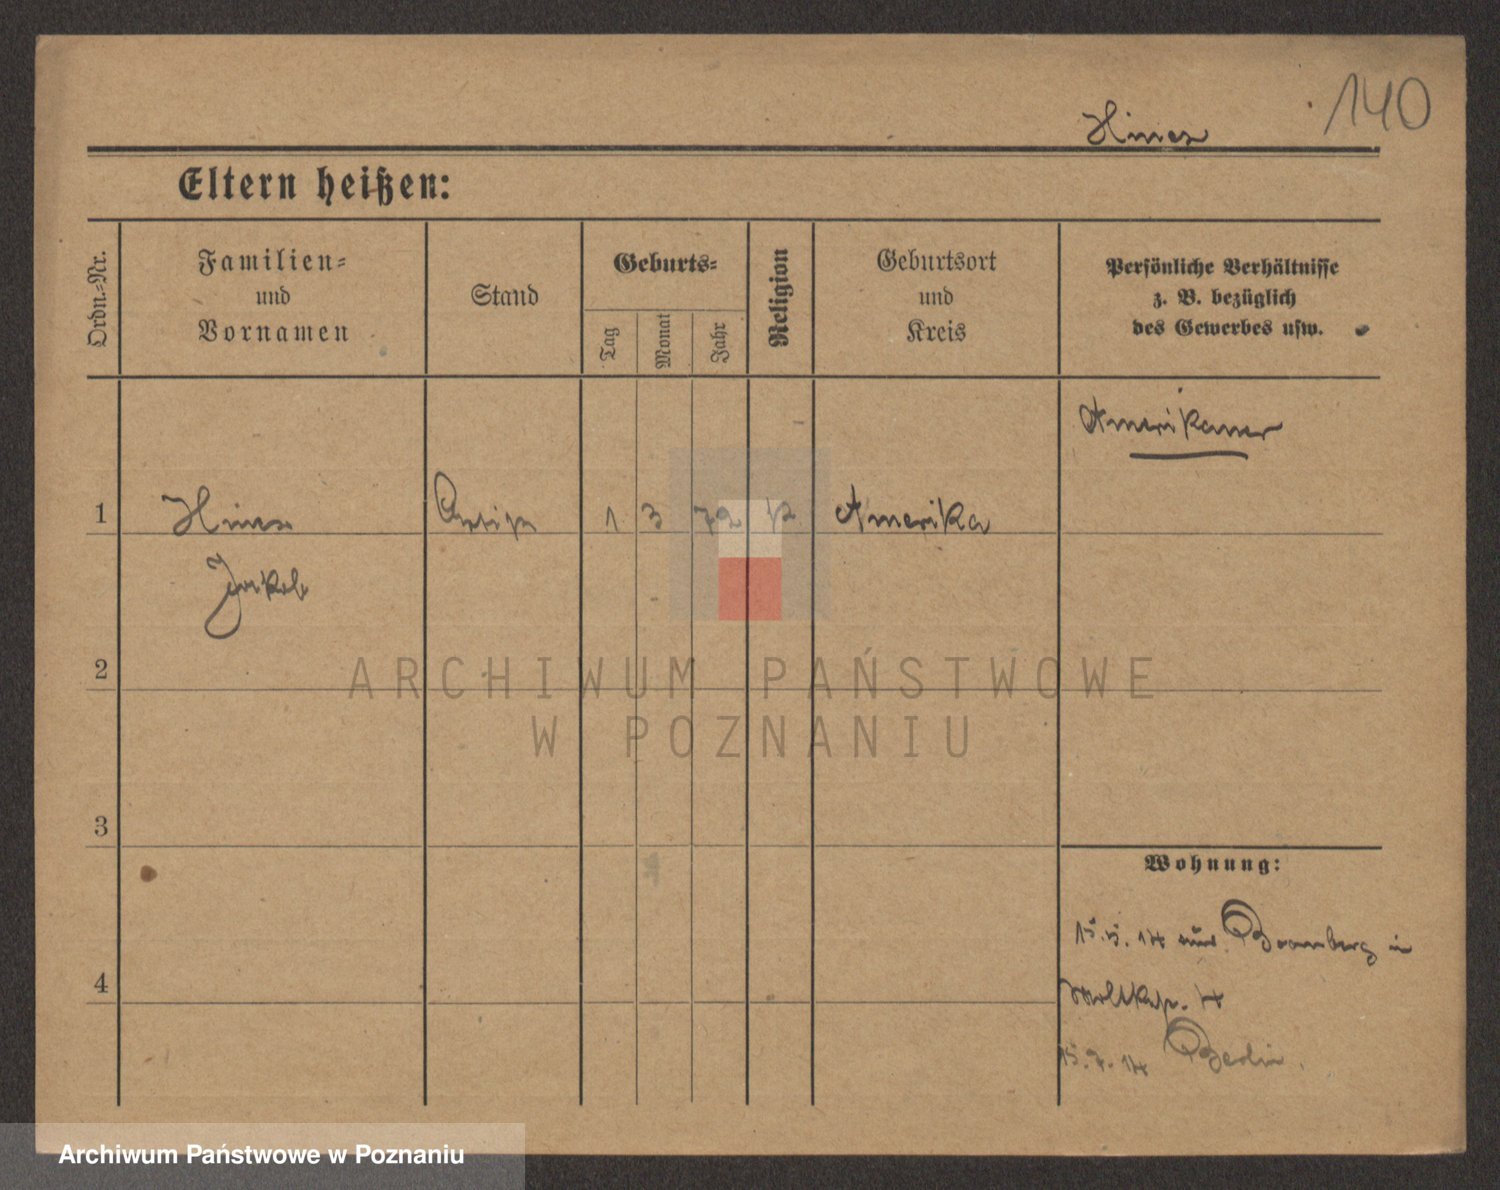 140
Hines
Eltern heißen:
Ordn.-Nr.
Familien-
und
Vornamen
Stand
Geburts-
Tag
Monat
Jahr
Religion
Geburtsort
und
Kreis
Persönliche Verhältnisse
z. B. bezüglich
des Gewerbes usw.
Amerikaner
1 Hines Artist 1 3 72 Amerika
Jakob
2
3
Wohnung:
15. 5. 14 aus Bromberg in
4
Moltkestr. 4
15. 7. 14 Berlin.
ARCHIWUM PAŃSTWOWE
W POZNANIU
Archiwum Państwowe w Poznaniu